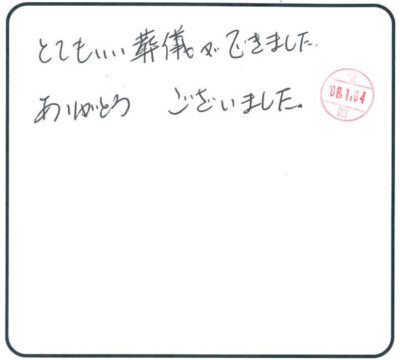 とてもいい葬儀ができました.
ありがとう ございました。
'08.1.04